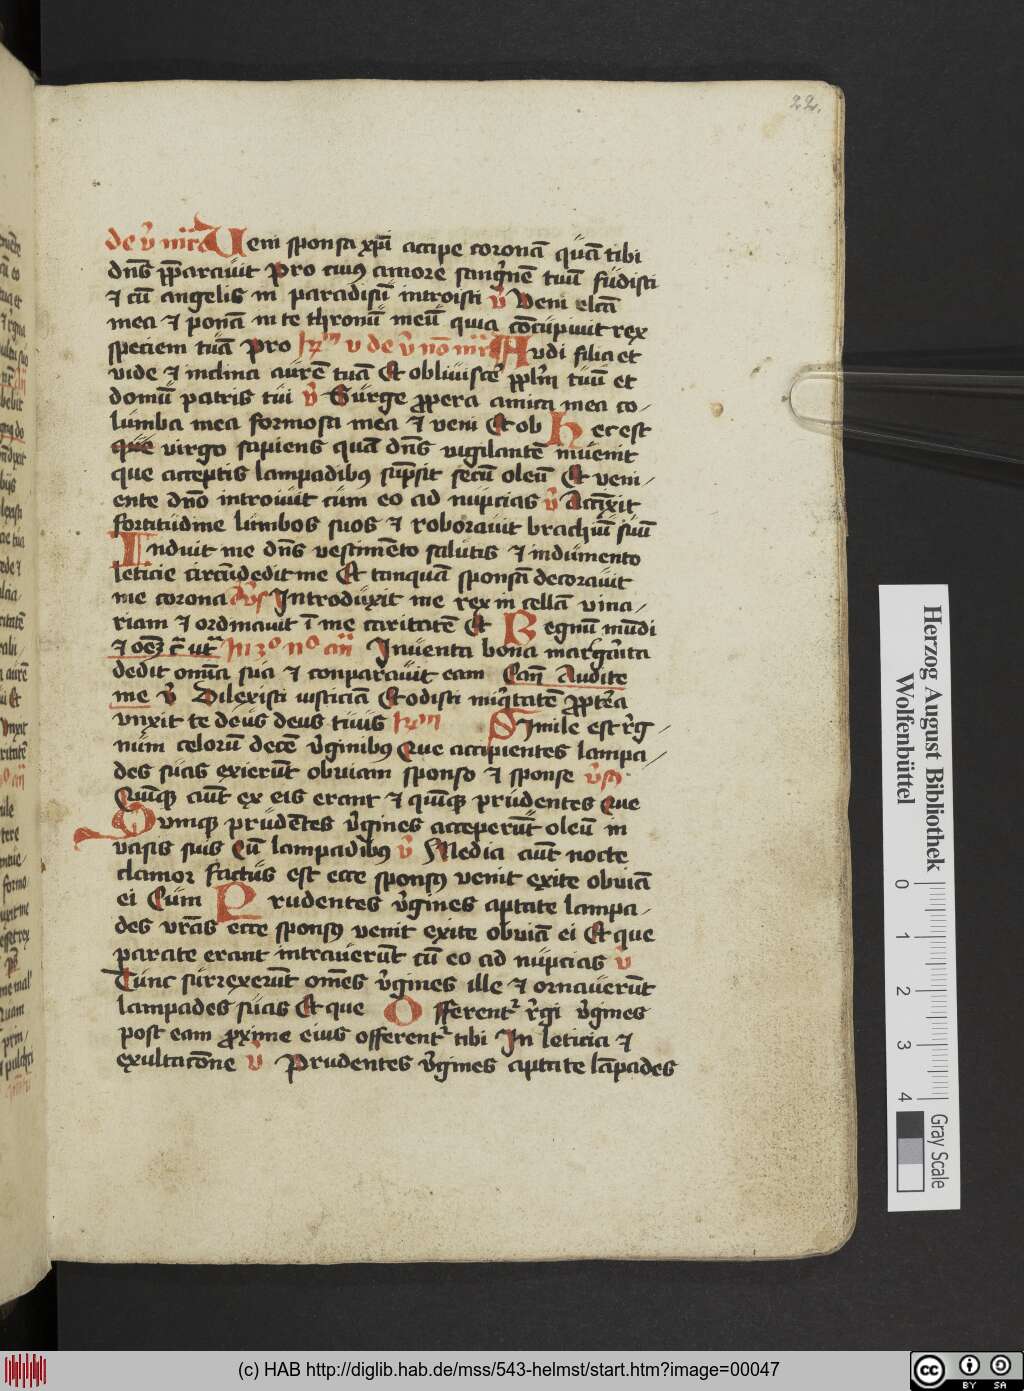 22.
de v̄ mr̄a Veni sponsa xp̄i accipe coronā quā tibi
dn̄s pp̄arauit Pro cuiꝰ amore sangu̇nē tuū fudisti
⁊ cū angelis in paradisū introisti v̄ Veni elcā
mea ⁊ ponā in te thronū meū quia cōcupiuit rex
speciem tuā Pro de v̄ nō mr̄a Audi filia et
vide ⁊ inclina aurē tuā Et obliuiscē pp̄lm̄ tuū et
domū patris tui v̄ Surge ꝓpera amica mea co-
lumba mea formosa mea ⁊ veni Et ob Hec est
que virgo sapiens quā dn̄s vigilantē inuenit
que acceptis lampadibꝰ sūpsit secū oleū Et veni-
ente dn̄o introiuit cum eo ad nupcias v̄ Accīxit
fortitudine lumbos suos ⁊ roborauit brachiū suū
Induit me dn̄s vestimēto salutis ⁊ indumento
leticie circūdedit me Et tanquā sponsā decorauit
me corona v̄s Introduxit me rex in cellā vina-
riam ⁊ ordinauit ī me caritatē Et Regnū mūdi
⁊ oēꝫ r̄ ut̄ In 3º nº an̄ Inuenta bona margarita
dedit omīa sua ⁊ conparauit eam Can̄ Audite
me v̄ Dilexisti iusticiā Et odisti iniq̇tatē ꝓpt̄ea
vnxit te deus deus tuus Simile est r̄g-
num celorū decē v̄ginibꝰ Que accipientes lampa-
des suas exierūt obuiam sponso ⁊ sponse v̄s
Quīqꝫ aūt ex eis erant ⁊ quīqꝫ prudentes Que
Quinqꝫ prudētes v̄gines acceperūt oleū in
vasis suis Cū lampadibꝰ v̄ Media aūt nocte
clamor factus est ecce sponsꝰ venit exite obuiā
ei Cum Prudentes v̄gines aptate lampa-
des vr̄as ecce sponsꝰ venit exite obuiā ei Et que
parate erant intrauerūt cū eo ad nupcias v̄
Tunc surrexerūt om̄es v̄gines ille ⁊ ornauerūt
lampades suas Et que Offerentᷣ r̄gi v̄gines
post eam ꝓxime eius offerentᷣ tibi In leticia ⁊
exultacōne v̄ Prudentes v̄gines aptate lāpades
Herzog August Bibliothek
Wolfenbüttel
0 1 2 3 4
Gray Scale
(c) HAB http://diglib.hab.de/mss/543-helmst/start.htm?image=00047
cc BY SA